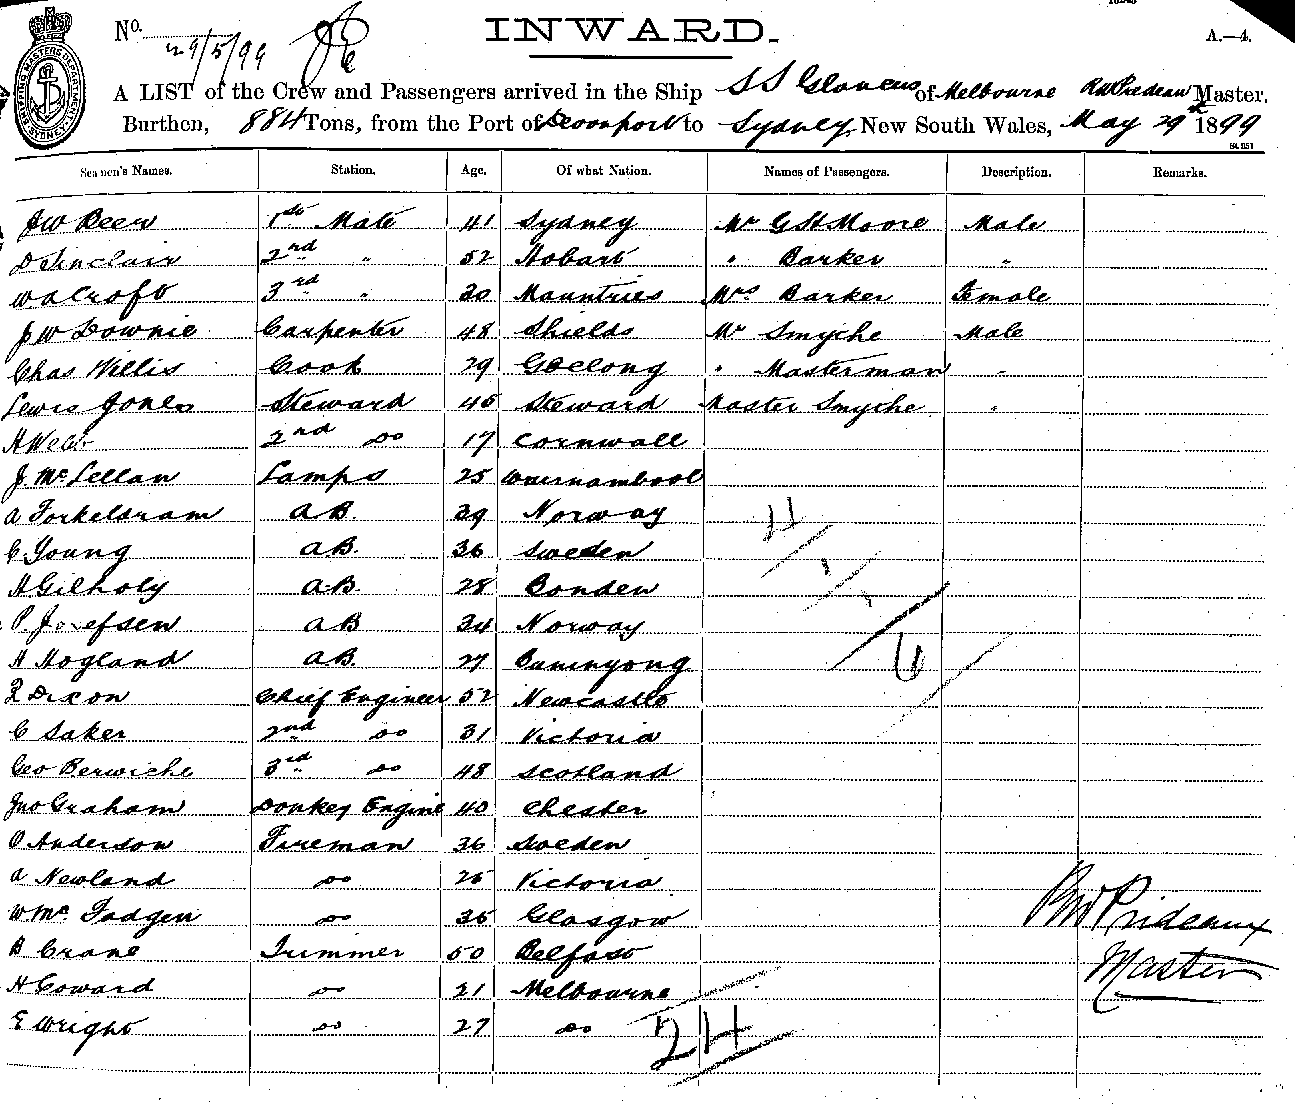 INWARD.
No. 29/5/99
A.—4.
A LIST of the Crew and Passengers arrived in the Ship SS Glaucus of Melbourne RW Prideaux Master,
Burthen, 884 Tons, from the Port of Devonport to Sydney New South Wales, May 29th 1899
Seamen's Names. Station. Age. Of what Nation. Names of Passengers. Description. Remarks.
JW Beer 1st Mate 41 Sydney Mr GH Moore Male
D Sinclair 2nd " 52 Hobart " Barker "
WA Croft 3rd " 30 Mauritius Mrs Barker Female
JW Downie Carpenter 48 Shields Mr Smythe Male
Chas Willis Cook 29 Geelong " Masterman "
Lewis Jones Steward 45 Steward Master Smythe "
H Webb 2nd do 17 Cornwall
J. McLellan Lamps 25 Warnambool
A Torkeldsram AB. 39 Norway
C Young AB. 36 Sweden
H Gilholy AB. 28 Bonden
P. Josefsen AB 34 Norway
H Hogland AB. 27 Buninyong
Dixon Chief Engineer 52 Newcastle
C Saker 2nd do 31 Victoria
Geo Berwiche 3rd do 48 Scotland
Jno Graham Donkey Engine 40 Chester
O Anderson Fireman 36 Sweden
A Newland do 25 Victoria
W McFadgen do 35 Glasgow
B Crane Trimmer 50 Belfast
H Coward do 21 Melbourne
E Wright do 27 do
4
1
1
6
24
RW Prideaux
Master